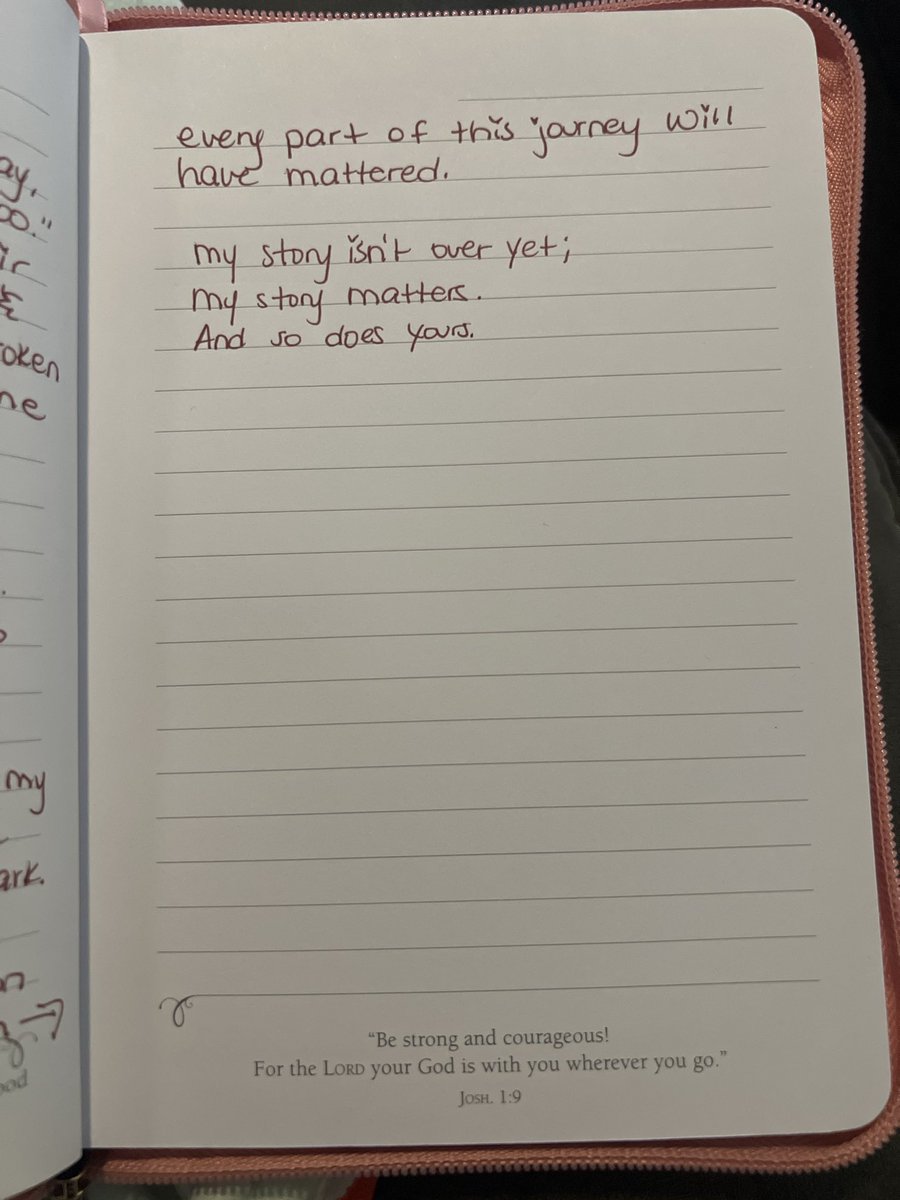 every part of this journey will
have mattered.
my story isn't over yet;
my story matters.
And so does yours.
"Be strong and courageous!
For the LORD your God is with you wherever you go."
JOSH. 1:9
ay,
oo."
ir
oken
ne
my
ark.